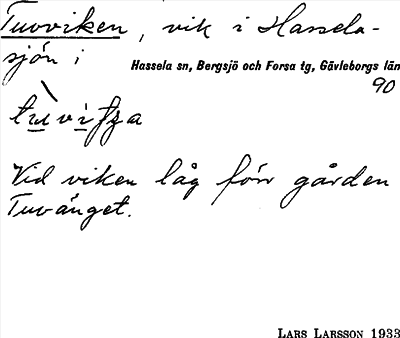 Tuvviken, vik i Hassela-
sjön i
Hassela sn, Bergsjö och Forsa tg, Gävleborgs län
90
Vid viken låg förr gården
Tuvänget.
LARS LARSSON 1933